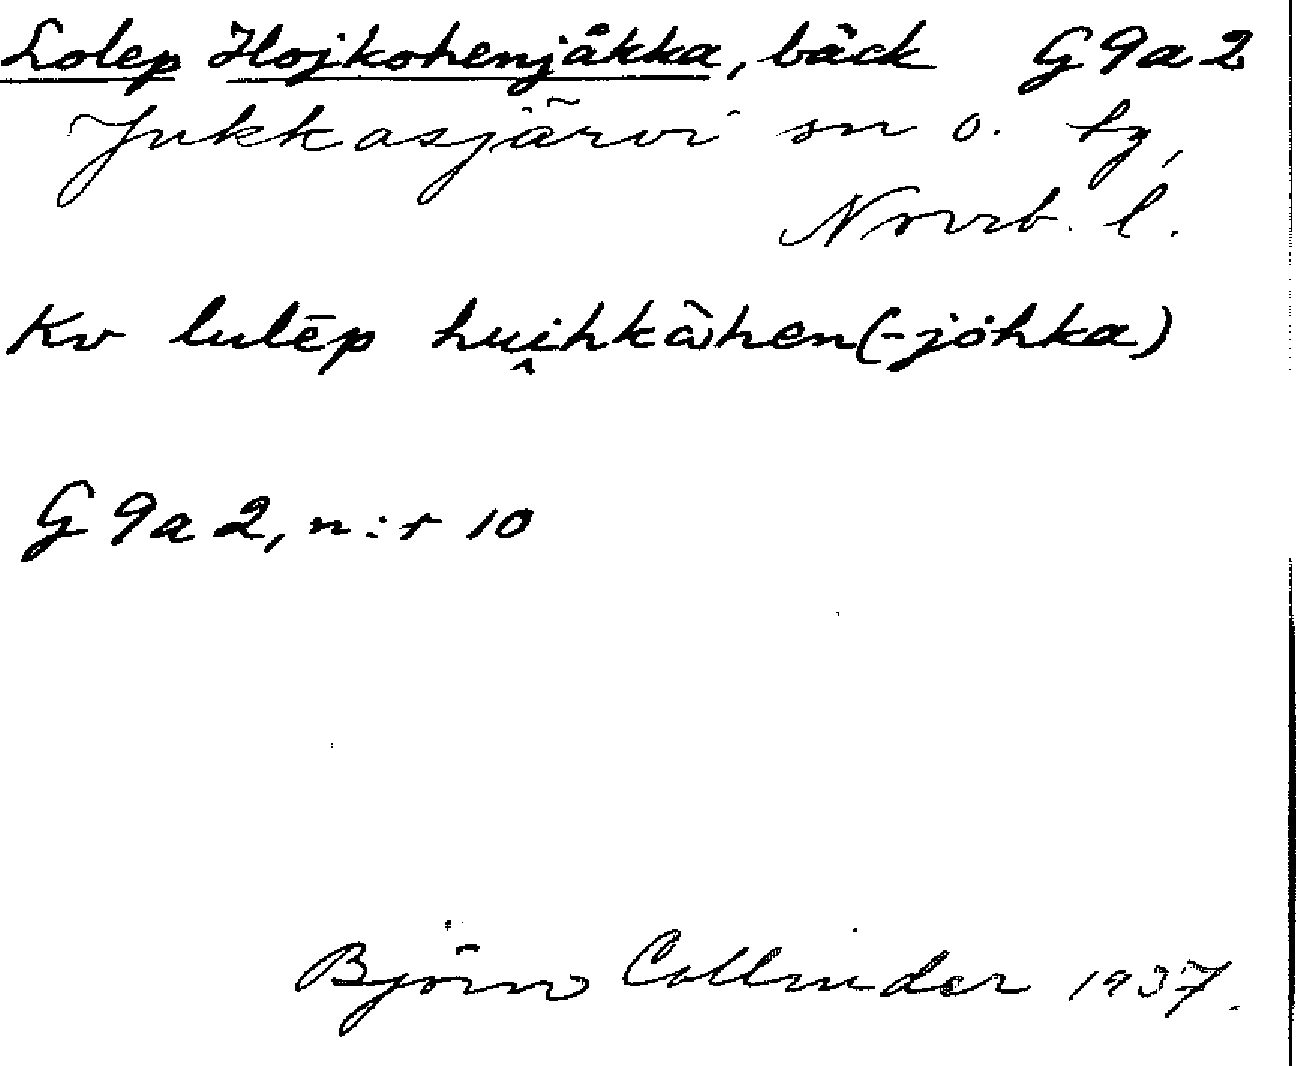 Lolep Hojkohenjåkka, bäck G9a2
Jukkasjärvi sn o. tg,
Norrb. l.
Kv lulēp hui̭hkà̀hen(-johka)
G9a2, n:r 10
Björn Collinder 1937.